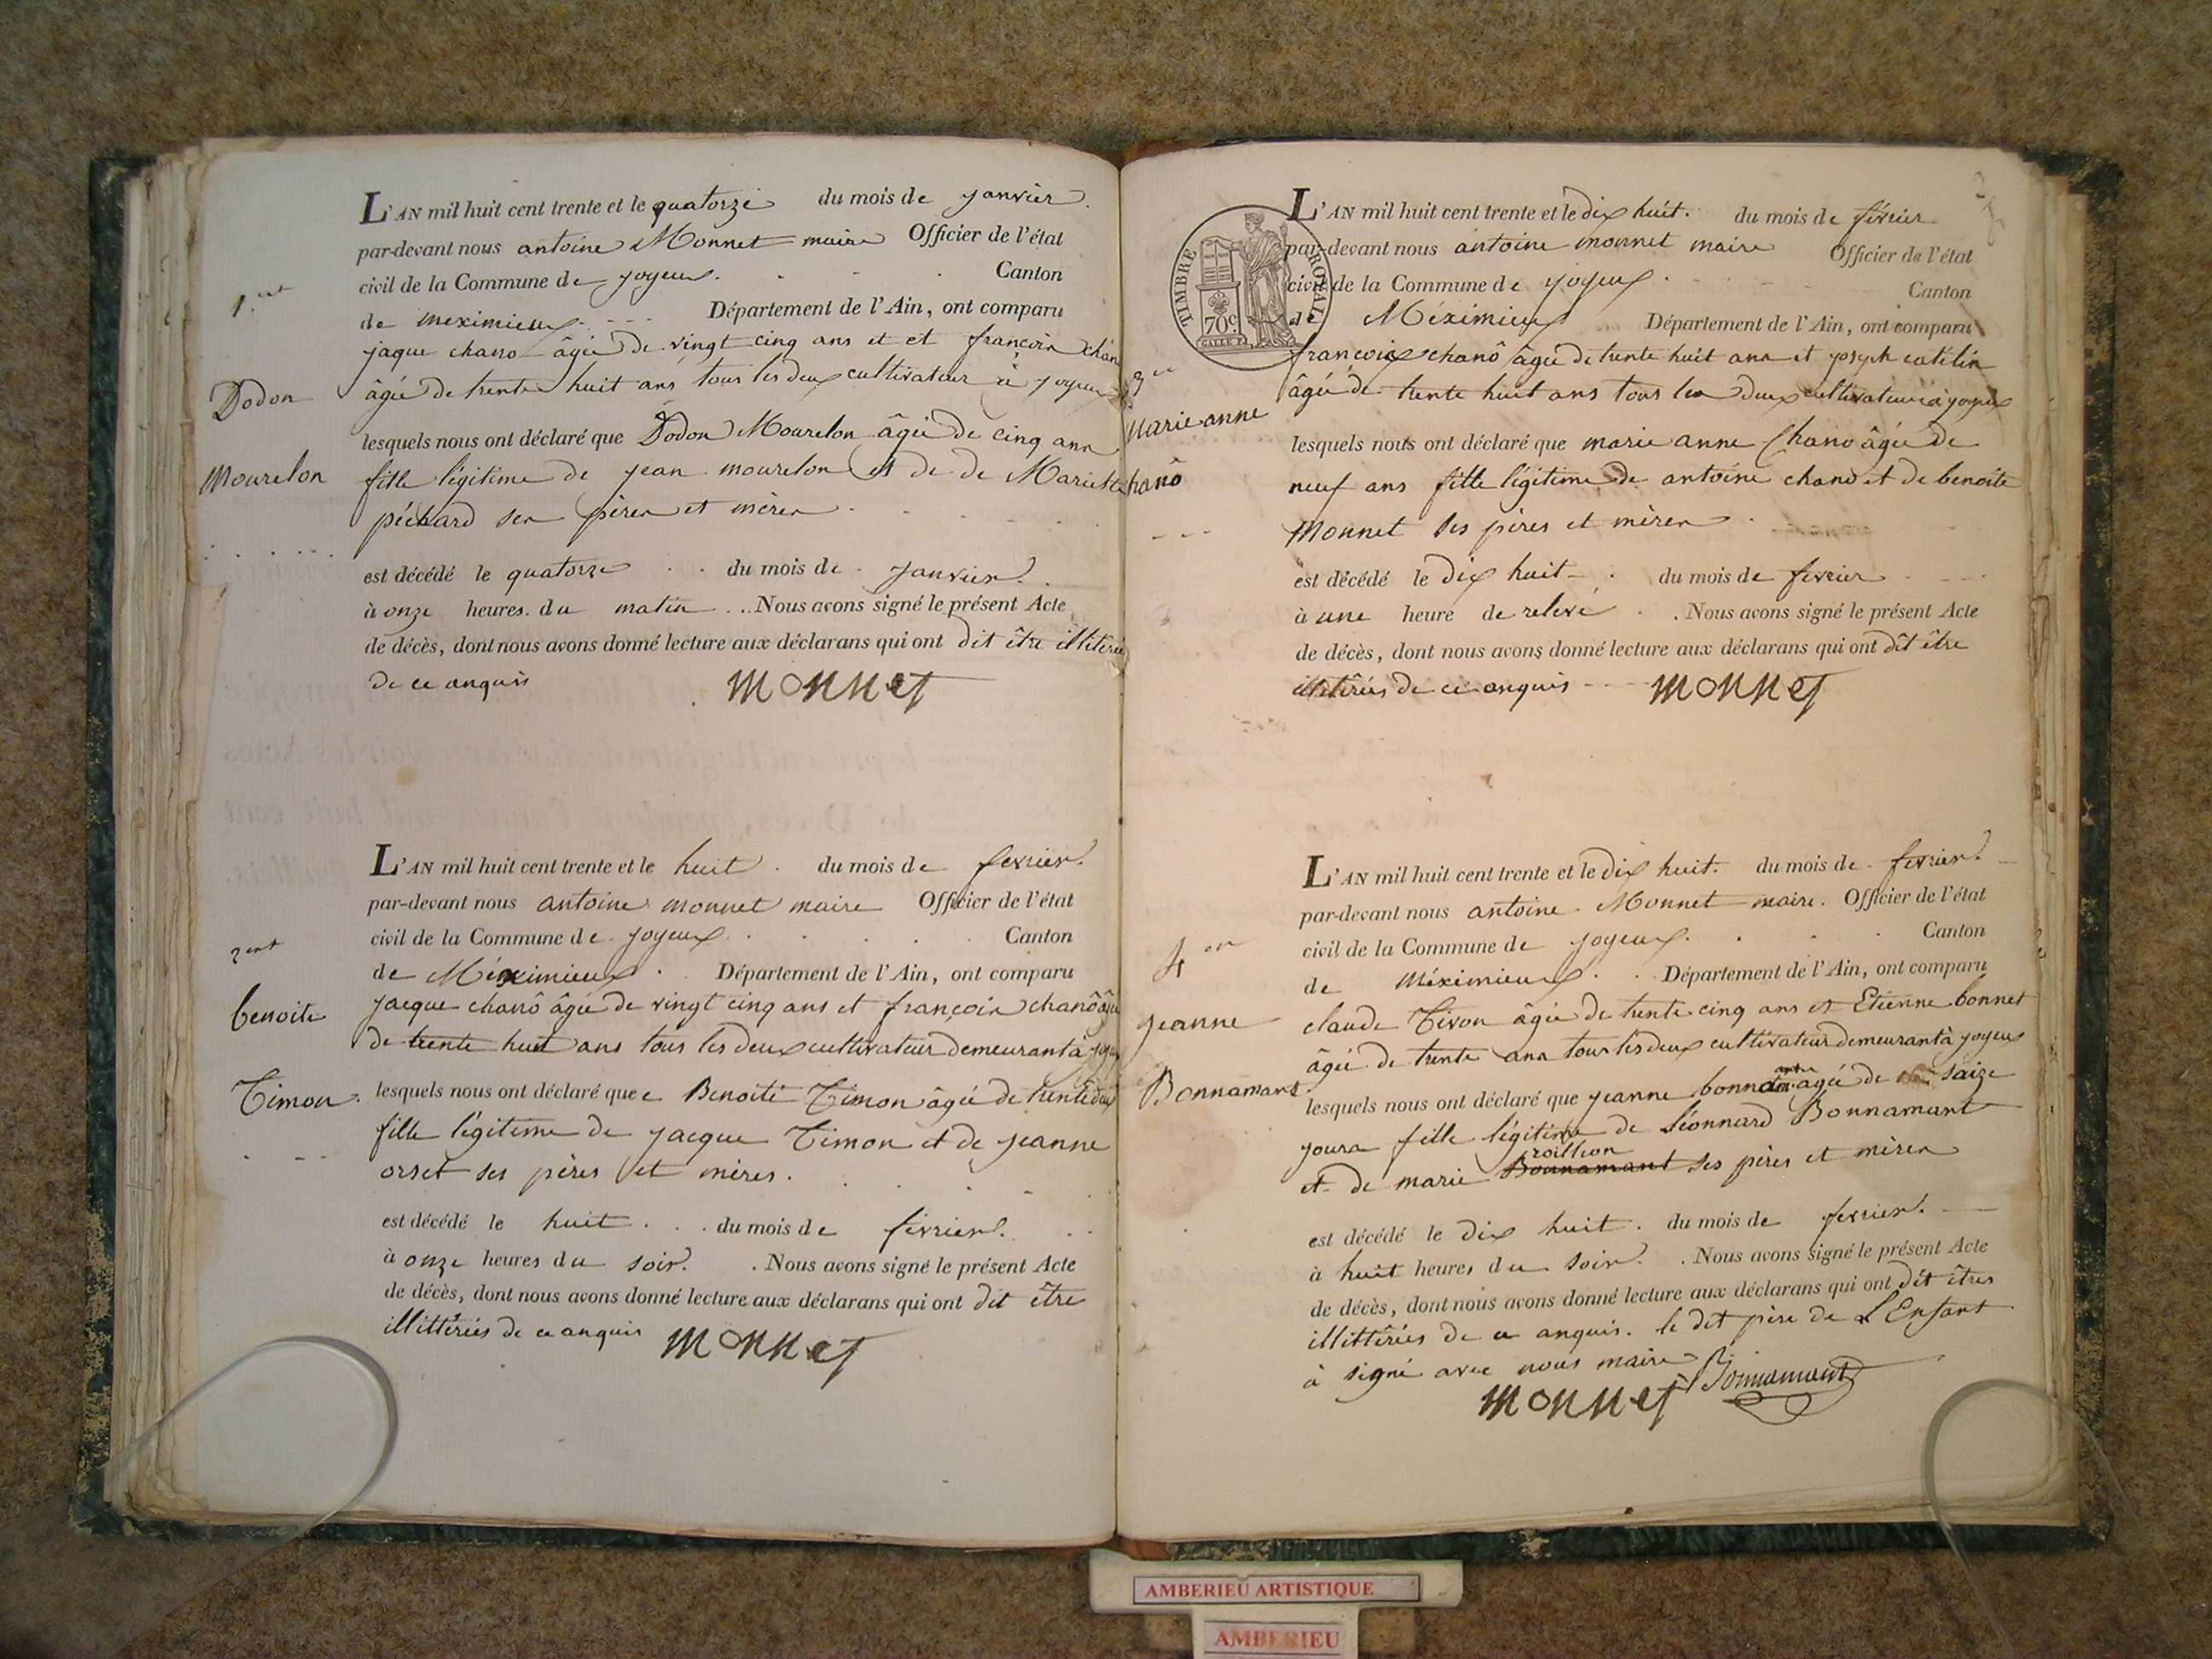 L'AN mil huit cent trente et le quatorze du mois de janvier
par-devant nous antoine Monnet maire Officier de l'état
civil de la Commune de joyeux. Canton
de meximieux Département de l'Ain, ont comparu
1.er
jaque chano âgée de vingt cinq ans et et francois chan
âgée de trente huit ans tous les deux cultivateur à joyeux
Dodon
lesquels nous ont déclaré que Dodon Mourelon âgée de cinq ans
Mourelon
fille légitime de jean mourelon et de de Mariette
péchard ses pères et mères
est décédé le quatorze du mois de janvier
à onze heures du matin Nous avons signé le présent Acte
de décès, dont nous avons donné lecture aux déclarans qui ont dit être illitérés
de ce anquis monnet
L'AN mil huit cent trente et le huit du mois de fevrier
par-devant nous antoine monnet maire Officier de l'état
civil de la Commune de joyeux Canton
de Méximieux Département de l'Ain, ont comparu
benoite
jacque chanô âgée de vingt cinq ans et françois chanô âgé
de trente huit ans tous les deux cultivateur demeurant à
Timon
lesquels nous ont déclaré que Benoite Timon âgée de trente deux
fille légitime de jacque Timon et de jeanne
orset ses pères et mères.
est décédé le huit du mois de février
à onze heures du soir. Nous avons signé le présent Acte
de décès, dont nous avons donné lecture aux déclarans qui ont dit être
illittérées de ce anquis monnet
TIMBRE ROYAL
70c.
L'AN mil huit cent trente et le dix huit. du mois de février
par-devant nous antoine monnet maire Officier de l'état
civil de la Commune de joyeux Canton
de Méximieux Département de l'Ain, ont comparu
françois chanô âgée de trente huit ans et joseph catélin
âgée de trente huit ans tous les deux cultivateur à joyeux
Marie anne
lesquels nous ont déclaré que marie anne Chano âgée de
chanô
neuf ans fille légitime de antoine chano et de benoite
Monnet ses pères et mères
est décédé le dix huit du mois de fevrier
à une heure de relevé Nous avons signé le présent Acte
de décès, dont nous avons donné lecture aux déclarans qui ont dit être
illitérées de ce anquis monnet
L'AN mil huit cent trente et le dix huit. du mois de fevrier
par-devant nous antoine Monnet maire. Officier de l'état
civil de la Commune de joyeux. Canton
4
de Méximieux Département de l'Ain, ont comparu
jeanne
claude Tivon âgée de trente cinq ans et Etienne bonnet
âgée de trente ans tous les deux cultivateur demeurant à joyeux
Bonnamant
lesquels nous ont déclaré que jeanne âgée de saize
jours fille légitime de Léonnard Bonnamant
roillion
et de marie Bonnamant ses pères et mères
est décédé le dix huit du mois de fevrier
à huit heures du soir Nous avons signé le présent Acte
de décès, dont nous avons donné lecture aux déclarans qui ont dit êtres
illittérées de ce anquis. le dit père de L'Enfant
à signé avec nous maire Bonnamant
monnet
AMBERIEU ARTISTIQUE
AMBERIEU